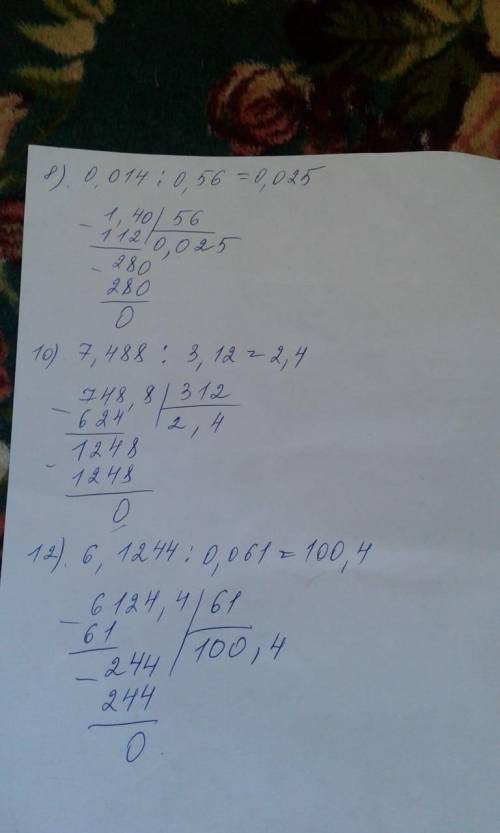 8). 0,014 : 0,56 = 0,025
- 1,40 | 56
112 0,025
- 280
280
0
10) 7,488 : 3,12 = 2,4
- 748,8 | 312
624 2,4
- 1248
1248
0
12). 6,1244 : 0,061 = 100,4
- 6124,4 | 61
61 100,4
- 244
244
0